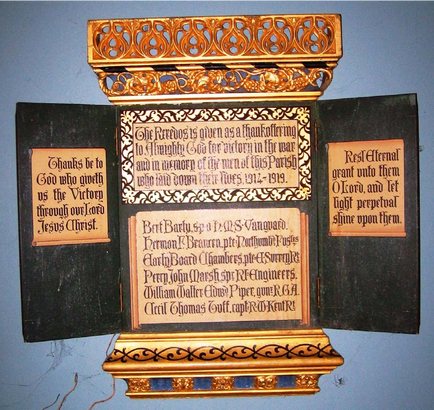 Thanks be to
God who giveth
us the Victory
through our Lord
Jesus Christ.
The Reredos is given as a thankoffering
to Almighty God for victory in the war
and in memory of the men of this Parish
who laid down their lives. 1914-1919.
Bert Barty, H.M.S. Vanguard.
Herman pte Northumb: Fus
Early Board Chambers, pte E. Surrey R.
Percy John Marsh, spr R! Engineers.
William Walter Edwd Piper, gunr R.G.A.
Cecil Thomas Tuff, capt R.W. Kent R!
Rest Eternal
grant unto them
O Lord, and let
light perpetual
shine upon them.